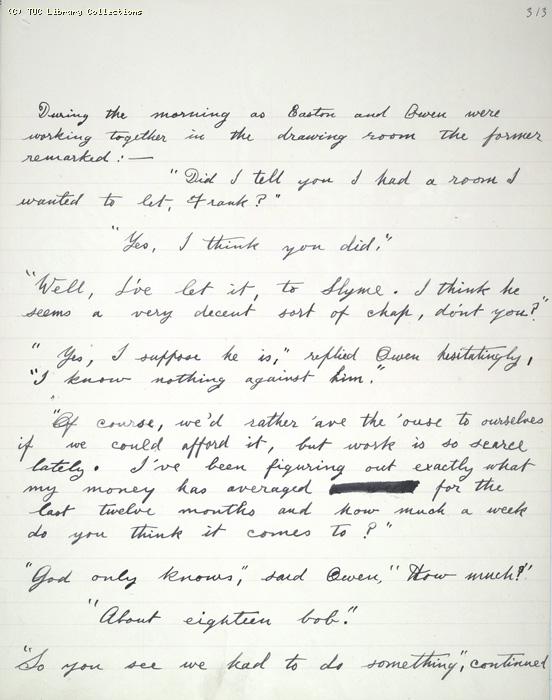 (C) TUC Library Collections
313
During the morning as Easton and Owen were
working together in the drawing room the former
remarked: —
"Did I tell you I had a room I
wanted to let, Frank?"
"Yes, I think you did."
"Well, I've let it, to Slyme. I think he
seems a very decent sort of chap, don't you?"
"Yes, I suppose he is," replied Owen hesitatingly,
"I know nothing against him."
"Of course, we'd rather 'ave the 'ouse to ourselves
if we could afford it, but work is so scarce
lately. I've been figuring out exactly what
my money has averaged for the
last twelve months and how much a week
do you think it comes to?"
"God only knows", said Owen, "How much?"
"About eighteen bob."
"So you see we had to do something", continued